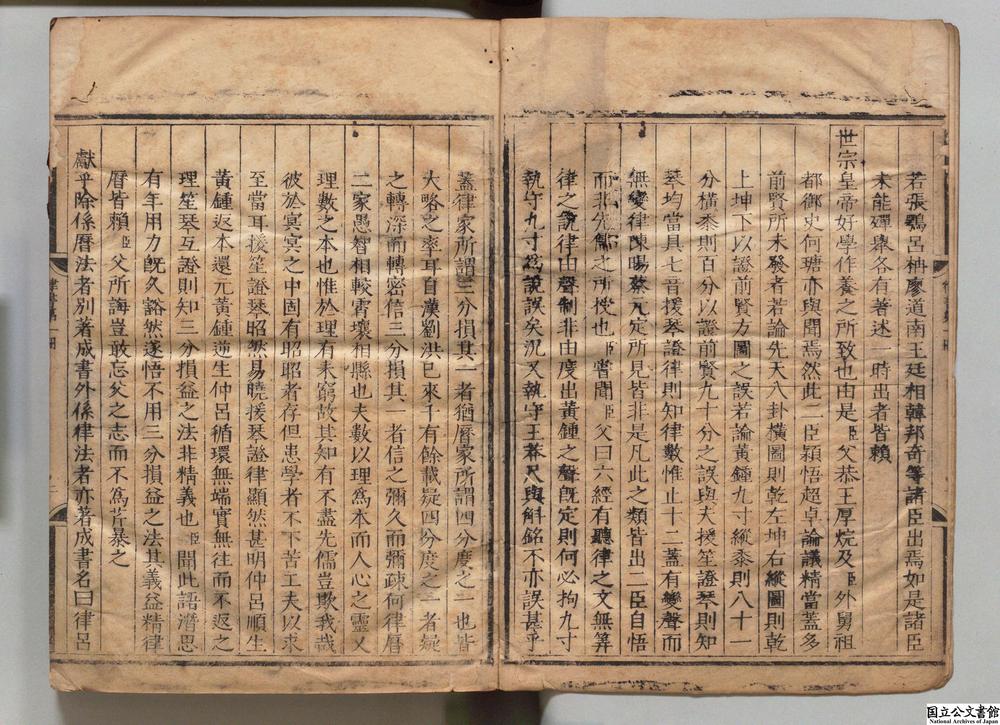 若張鶚呂柟廖道南王廷相韓邦奇等諸臣出焉如是諸臣
未能殫舉各有著述一時出者皆賴
世宗皇帝好學作養之所致也由是臣父恭王厚烷及臣外舅祖
都御史何瑭亦與聞焉然此二臣穎悟超卓論議精當蓋多
前賢所未發者若論先天八卦橫圖則乾左坤右縱圖則乾
上坤下以證前賢方圖之誤若論黃鍾九寸縱黍則八十一
分橫黍則百分以證前賢九十分之誤與夫援笙證琴則知
琴均當具七音援琴證律則知律數惟止十二蓋有變聲而
無變律陳暘蔡元定所見皆非是凡此之類皆出二臣自悟
而非先儒之所授也臣嘗聞臣父曰六經有聽律之文無筭
律之說律由聲制非由度出黃鍾之聲旣定則何必拘九寸
執守九寸爲說誤矣況又執守王莽尺與斛銘不亦誤甚乎
蓋律家所謂三分損其一者猶曆家所謂四分度之一也皆
大略之率耳自漢劉洪已來千有餘載疑四分度之一者疑
之轉深而轉密信三分損其一者信之彌久而彌疎何律曆
二家愚智相較霄壤相縣也夫數以理爲本而人心之靈又
理數之本也惟於理有未窮故其知有不盡先儒豈欺我哉
彼於冥冥之中固有昭昭者存但患學者不下苦工夫以求
至當耳援笙證琴昭然易曉援琴證律顯然甚明仲呂順生
黃鍾返本還元黃鍾逆生仲呂循環無端實無往而不返之
理笙琴互證則知三分損益之法非精義也臣聞此語潛思
有年用力旣久豁然遂悟不用三分損益之法其義益精律
曆皆賴臣父所誨豈敢忘父之志而不爲芹暴之
獻乎除係曆法者別著成書外係律法者亦著成書名曰律呂
国立公文書館
National Archives of Japan